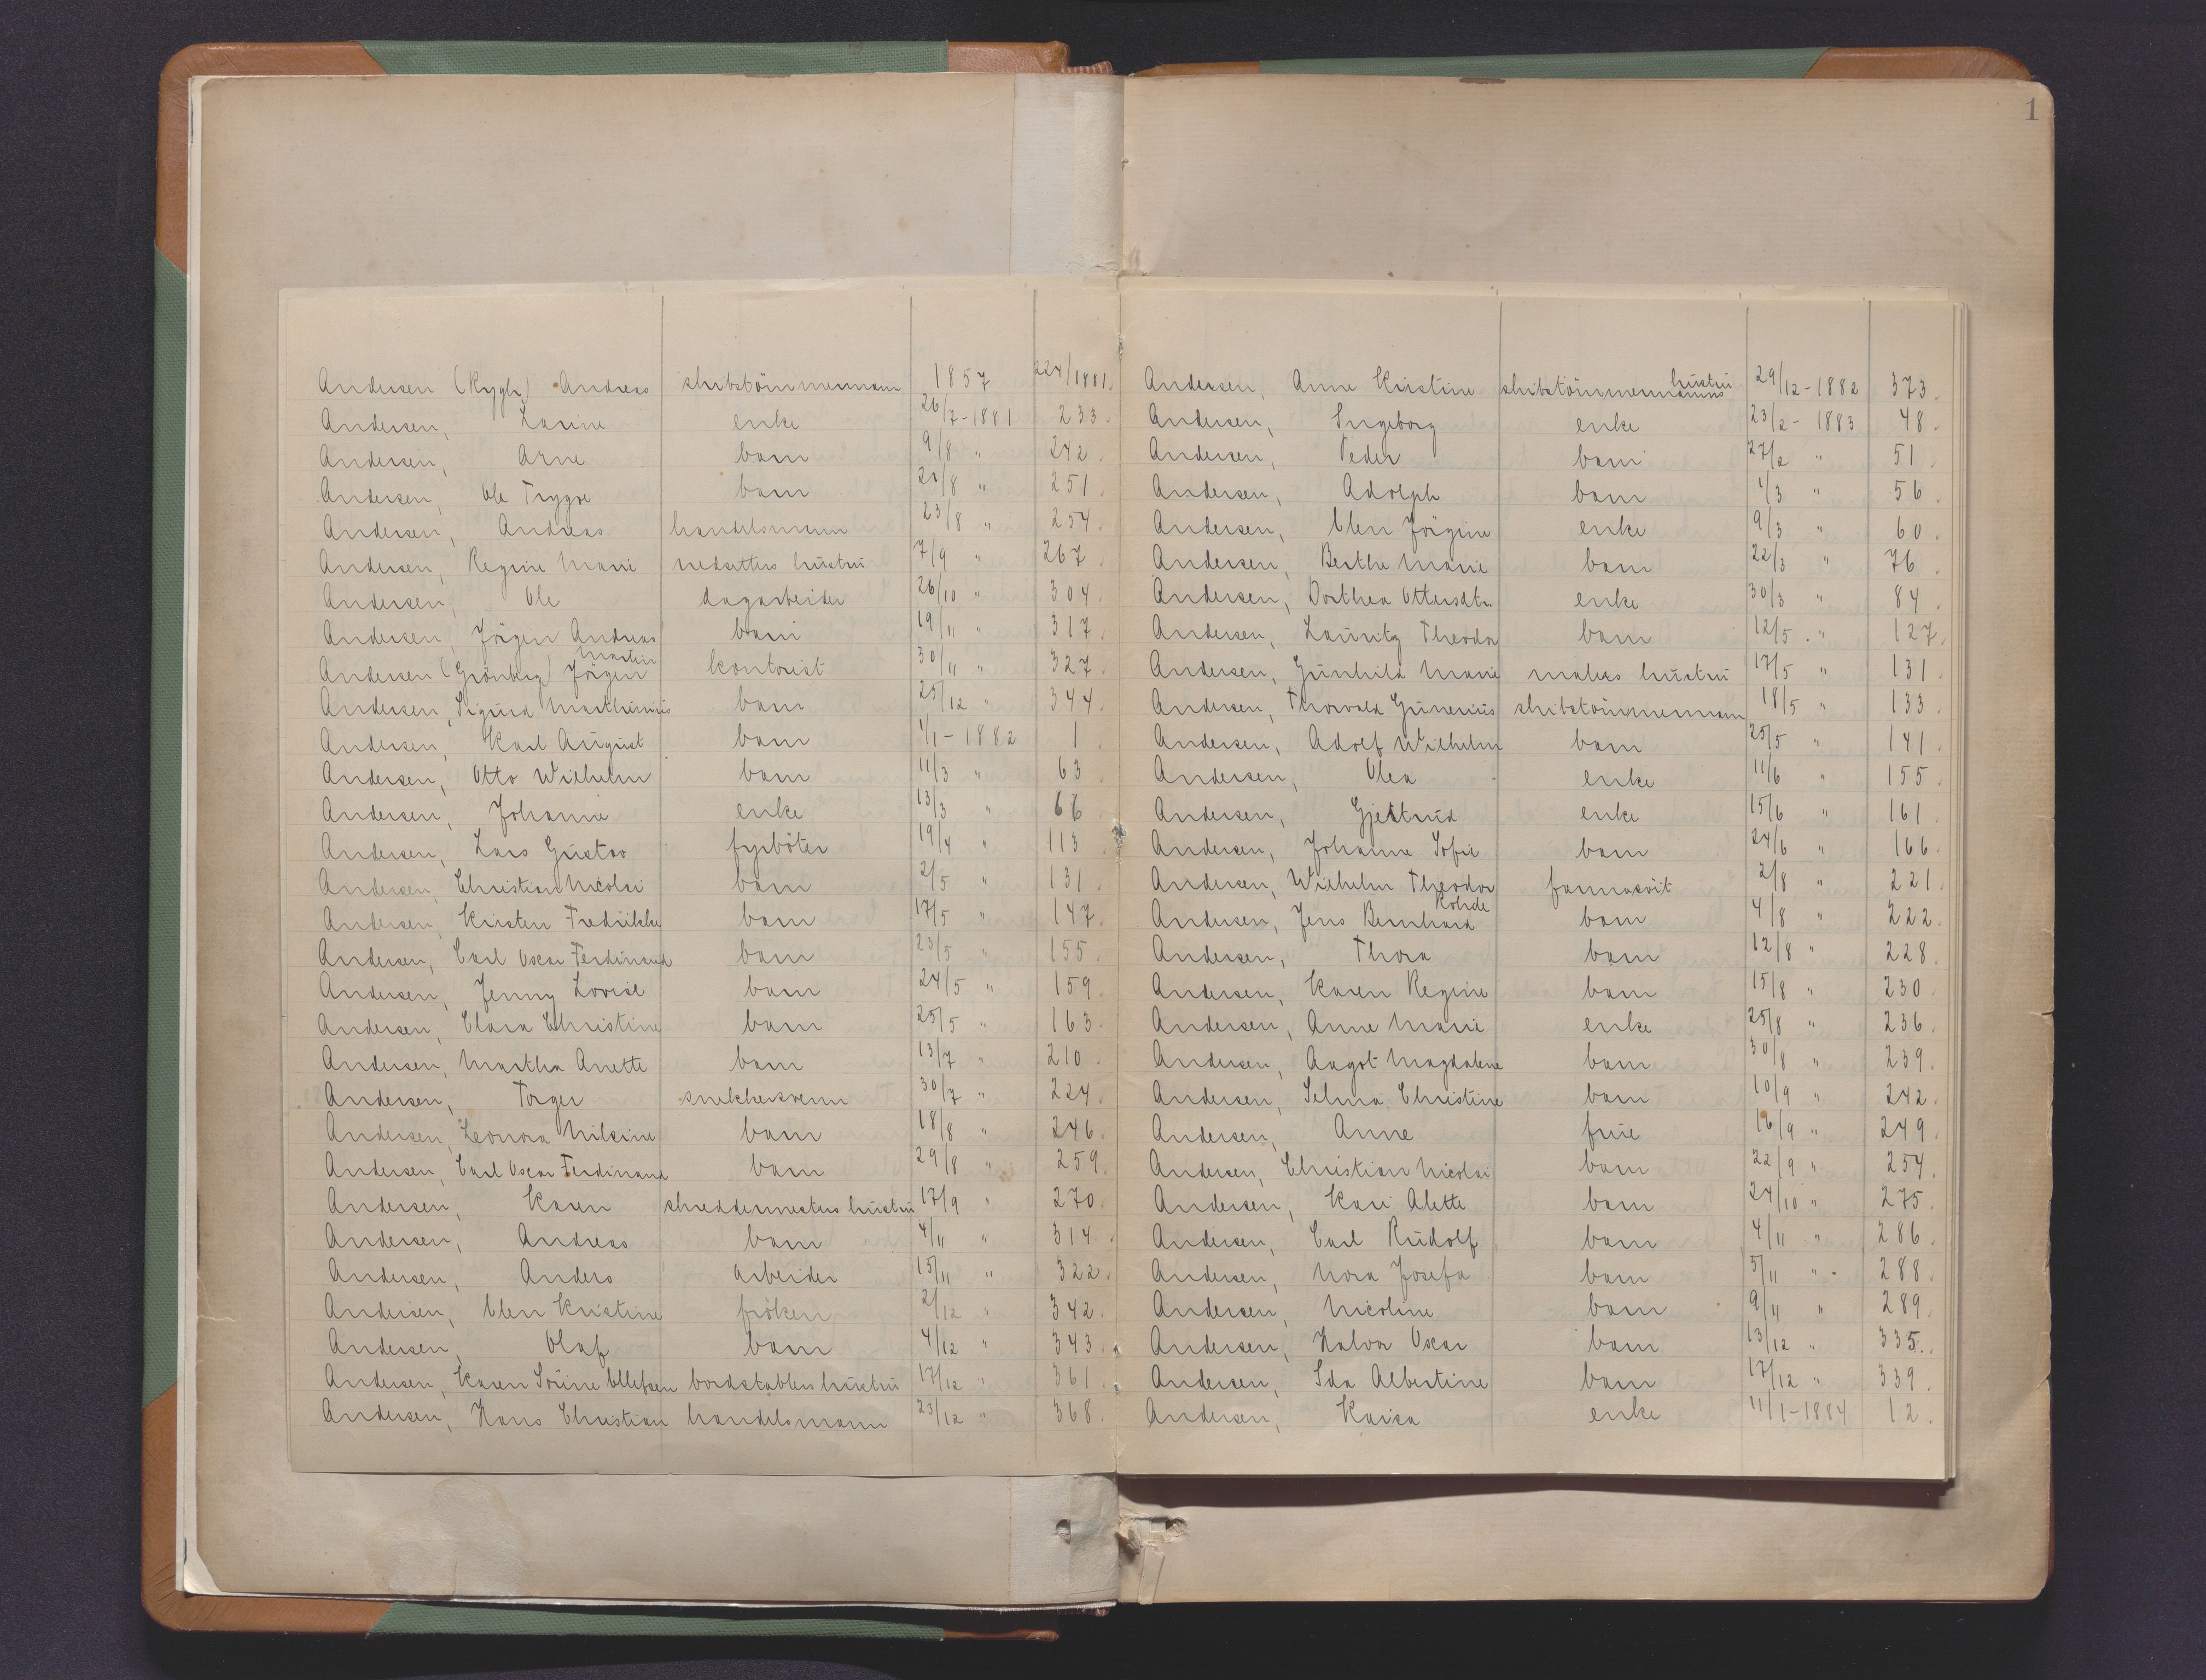 1
Andersen (Rygh) Andreas skibstömmermann 1857 224/1881.
Andersen, Laurine enke 26/7-1881 233.
Andersen, Arne barn 9/8 " 242.
Andersen, Ole Trygve barn 21/8 " 251.
Andersen, Andreas handelsmann 23/8 " 254.
Andersen, Regine Marie hustru 7/9 " 267.
Andersen, Ole dagarbeider 26/10 " 304.
Andersen, Jörgen Andreas barn 19/11 " 317.
Andersen (Grönberg) Jörgen Martin kontorist 30/11 " 327.
Andersen, Sigurd Marthinius barn 25/12 " 344.
Andersen, Karl August barn 1/1-1882 1.
Andersen, Otto Wilhelm barn 11/3 " 63.
Andersen, Johanne enke 13/3 " 66.
Andersen, Lars Gustav fyrböter 19/4 " 113.
Andersen, Christian Nicolai barn 2/5 " 131.
Andersen, Kristen Fredrikke barn 17/5 " 147.
Andersen, Carl Oscar Ferdinand barn 23/5 " 155.
Andersen, Jenny Lovise barn 24/5 " 159.
Andersen, Clara Christine barn 25/5 " 163.
Andersen, Martha Anette barn 13/7 " 210.
Andersen, Torger snekkersvenn 30/7 " 224.
Andersen, Leonora Nilsine barn 18/8 " 246.
Andersen, Carl Oscar Ferdinand barn 29/8 " 259.
Andersen, Karen skreddermesters hustru 17/9 " 270.
Andersen, Andreas barn 4/11 " 314.
Andersen, Anders arbeider 15/11 " 322.
Andersen, Elen Kristine fröken 2/12 " 342.
Andersen, Olaf barn 4/12 " 343.
Andersen, Karen Sörine Ellefsen bordstablers hustru 17/12 " 361.
Andersen, Hans Christian handelsmann 23/12 " 368.
Andersen, Anne Kristine skibstömmermanns hustru 29/12-1882 373.
Andersen, Ingeborg enke 23/2-1883 48.
Andersen, Peder barn 27/2 " 51.
Andersen, Adolph barn 1/3 " 56.
Andersen, Elen Jörgine enke 9/3 " 60.
Andersen, Berthe Marie barn 22/3 " 76.
Andersen, Dorthea Ottersdtr. enke 30/3 " 84.
Andersen, Lauritz Theodor barn 12/5 " 127.
Andersen, Gunhild Marie malers hustru 17/5 " 131.
Andersen, Thorvald Gunerius skibstömmermann 18/5 " 133.
Andersen, Adolf Wilhelm barn 25/5 " 141.
Andersen, Olea enke 11/6 " 155.
Andersen, Gjertrud enke 15/6 " 161.
Andersen, Johanne Sofie barn 24/6 " 166.
Andersen, Wilhelm Theodor farmasöit 2/8 " 221.
Andersen, Jens Bernhard Rohde barn 4/8 " 222.
Andersen, Thora barn 12/8 " 228.
Andersen, Karen Regine barn 15/8 " 230.
Andersen, Anne Marie enke 25/8 " 236.
Andersen, Aagot Magdalene barn 30/8 " 239.
Andersen, Selma Christine barn 10/9 " 242.
Andersen, Anne frue 16/9 " 249.
Andersen, Christian Nicolai barn 22/9 " 254.
Andersen, Kari Alette barn 24/10 " 275.
Andersen, Carl Rudolf barn 4/11 " 286.
Andersen, Nora Josefa barn 5/11 " 288.
Andersen, Nicoline barn 9/11 " 289.
Andersen, Halvor Oscar barn 13/12 " 335.
Andersen, Ida Albertine barn 17/12 " 339.
Andersen, Kaisa enke 11/1-1884 12.